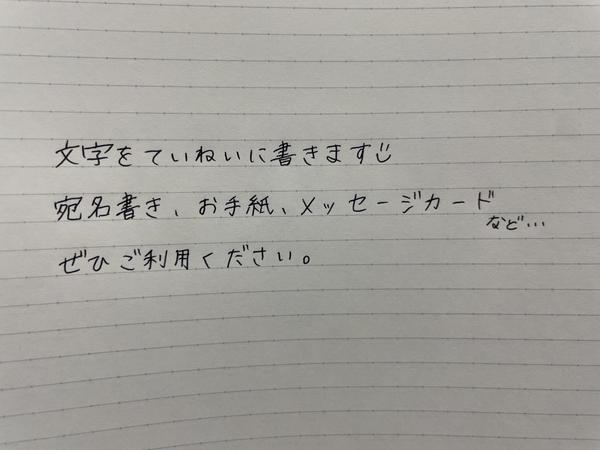 文字をていねいに書きます
宛名書き、お手紙、メッセージカード
など...
ぜひご利用ください。